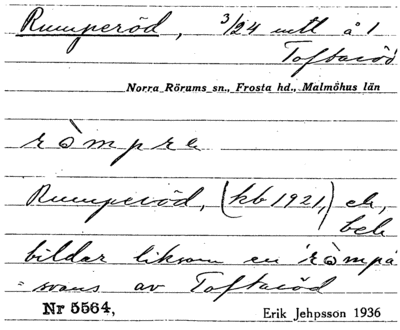 Rumperöd, 3/24 mtl å 1
Toftaröd
Norra Rörums sn., Frosta hd., Malmöhus län
ròmpre
Rumperöd, (kb 1921,) eh,
beb
bildar liksom en ròmpa
= svans av Toftaröd
Nr 5564,
Erik Jehpsson 1936